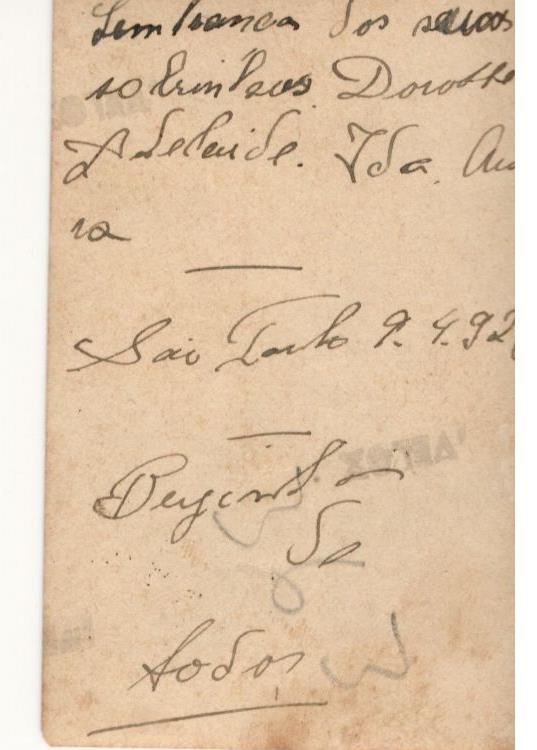 Lembranca dos seus
sobrinhos Dorothe
Adelaide. Ida. Au
ra
São Paulo 9.4.92
da
todos
VELOX